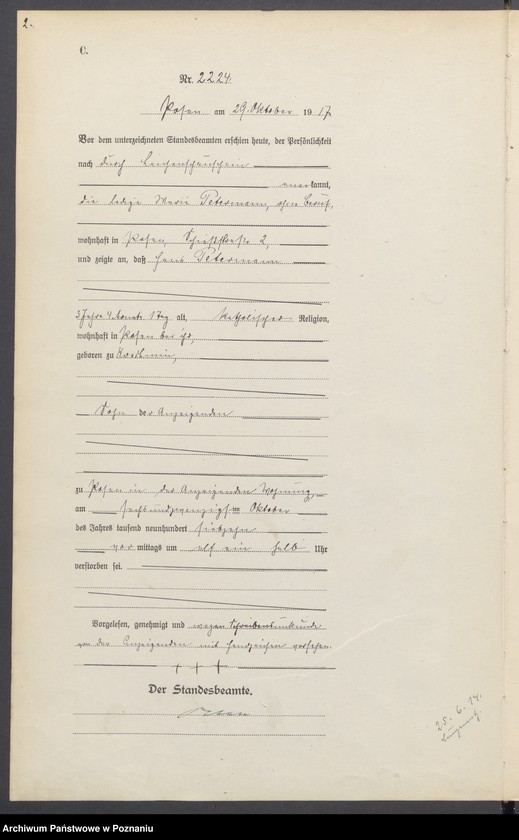 2.
C.
Nr. 2224.
Posen am 29. Oktober 1917
Vor dem unterzeichneten Standesbeamten erschien heute, der Persönlichkeit
nach durch Leichenschauschein
anerkannt,
die ledige Marie Petermann, ohne Beruf,
wohnhaft in Posen, 2,
und zeigte an, daß Hans Petermann
3 Jahre 4 Monate 1 Tag alt, katholischer Religion,
wohnhaft in Posen bei ihr,
geboren zu
Sohn der Anzeigenden
zu Posen in der Anzeigenden Wohnung,
am sechsundzwanzigsten Oktober
des Jahres tausend neunhundert siebzehn
vor mittags um elf ein halb Uhr
verstorben sei.
Vorgelesen, genehmigt und wegen Schreibensunkunde
von der Anzeigenden mit Handzeichen versehen.
+ + +
Der Standesbeamte.
25. 6. 14.
Archiwum Państwowe w Poznaniu